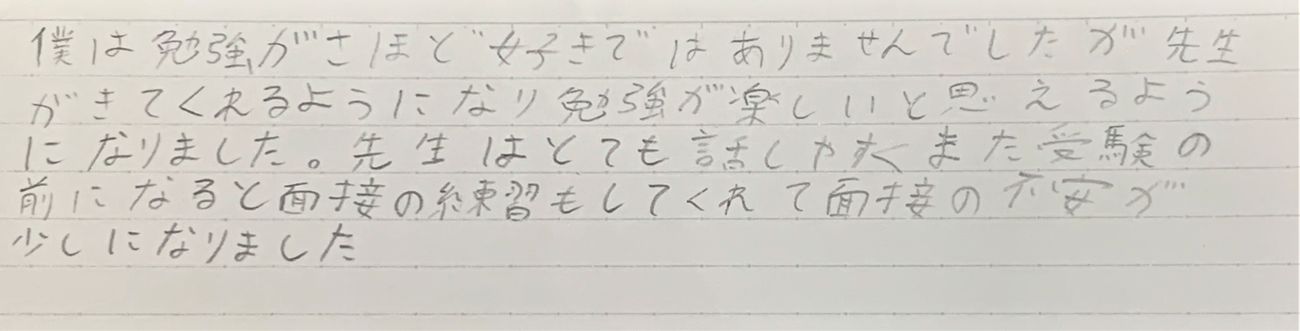 僕は勉強がさほど好きではありませんでしたが先生
がきてくれるようになり勉強が楽しいと思えるよう
になりました。先生はとても話しやすくまた受験の
前になると面接の練習もしてくれて面接の不安が
少しになりました